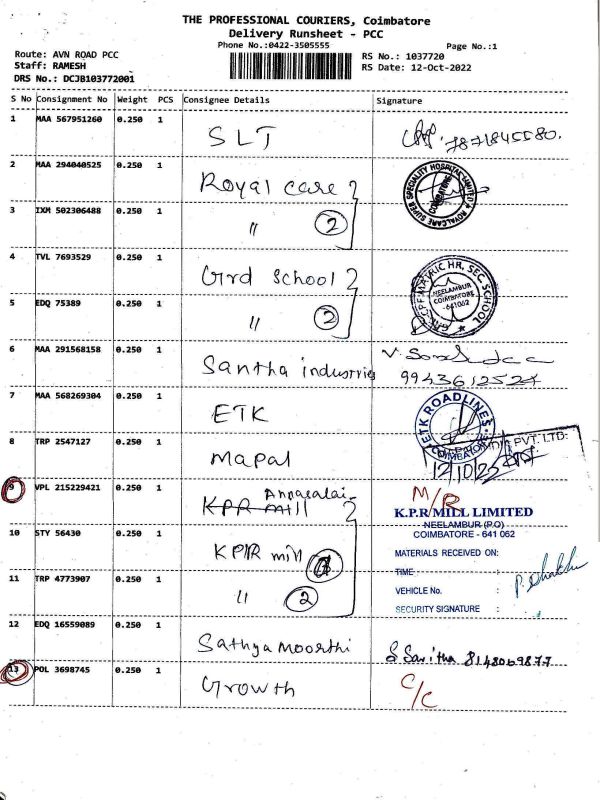 THE PROFESSIONAL COURIERS, Coimbatore
Delivery Runsheet - PCC
Phone No.:0422-3505555
Page No.:1
Route: AVN ROAD PCC
Staff: RAMESH
DRS No.: DCJB103772001
RS No.: 1037720
RS Date: 12-Oct-2022
S No Consignment No Weight PCS Consignee Details Signature
1 MAA 567951260 0.250 1 SLT 7871845580.
2 MAA 294040525 0.250 1 Royal care
3 IXM 502306488 0.250 1 " 2
ROYALCARE SUPER SPECIALITY HOSPITAL LIMITED
COIMBATORE
4 TVL 7693529 0.250 1 Grd School
5 EDQ 75389 0.250 1 " 2
MATRIC HR. SEC. SCHOOL
NEELAMBUR
COIMBATORE
- 641062
6 MAA 291568158 0.250 1 Santha industries
9943612527
7 MAA 568269304 0.250 1 ETK
ETK ROADLINES
COIMBATORE
8 TRP 2547127 0.250 1 Mapal
PVT. LTD.
12/10/23
9 VPL 215229421 0.250 1 KPR mill Annasalai M/R
10 STY 56430 0.250 1 KPR mill
11 TRP 4773907 0.250 1 " 2
K.P.R MILL LIMITED
NEELAMBUR (P.O)
COIMBATORE - 641 062
MATERIALS RECEIVED ON:
TIME :
VEHICLE No. :
SECURITY SIGNATURE :
12 EDQ 16559089 0.250 1 Sathya moorthi S Savitha 8148069877
13 POL 3698745 0.250 1 Growth C/C